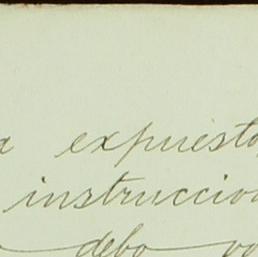 expuesto
instruccion
debo